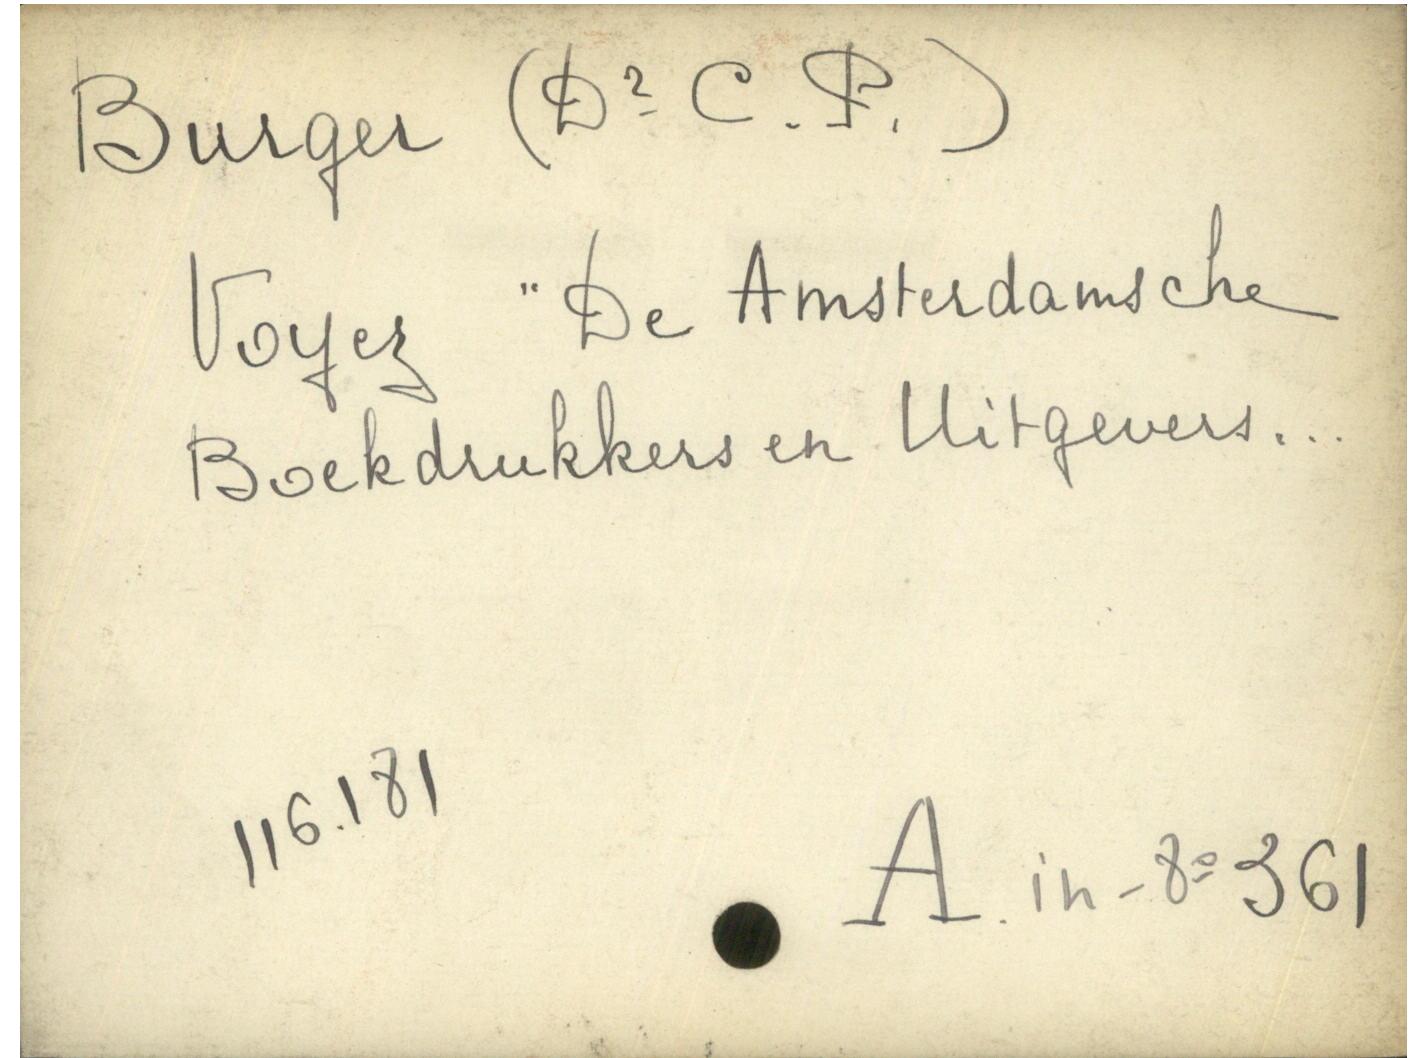 Burger (Dr C.P.)
Voyez "De Amsterdamsche
Boekdrukkers en Uitgevers...
116.181
A. in-8º 361